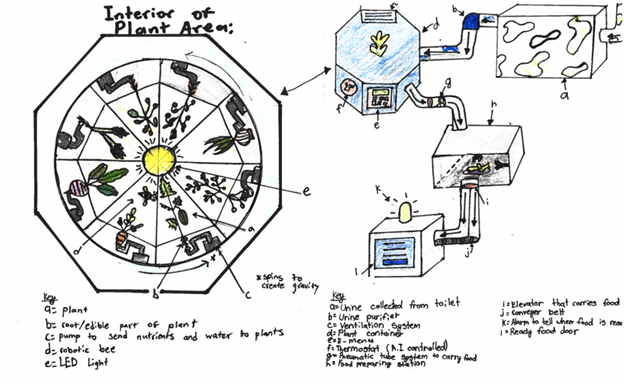 Interior of
Plant Area:
f
d
b
a
g
f
e
h
k
i
l
j
e
a
d
b
c
*spins to
create gravity
Key
a= plant
b= root/edible part of plant
c= pump to send nutrients and water to plants
d= robotic bee
e= LED Light
Key
a= Urine collected from toilet
b= Urine purifier
c= Ventilation system
d= Plant container
e= E-menu
f= Thermostat (A.I controlled)
g= Pneumatic tube system to carry food
h= Food preparing station
i= Elevator that carries food
j= Conveyer belt
k= Alarm to tell when food is
l= Ready food door